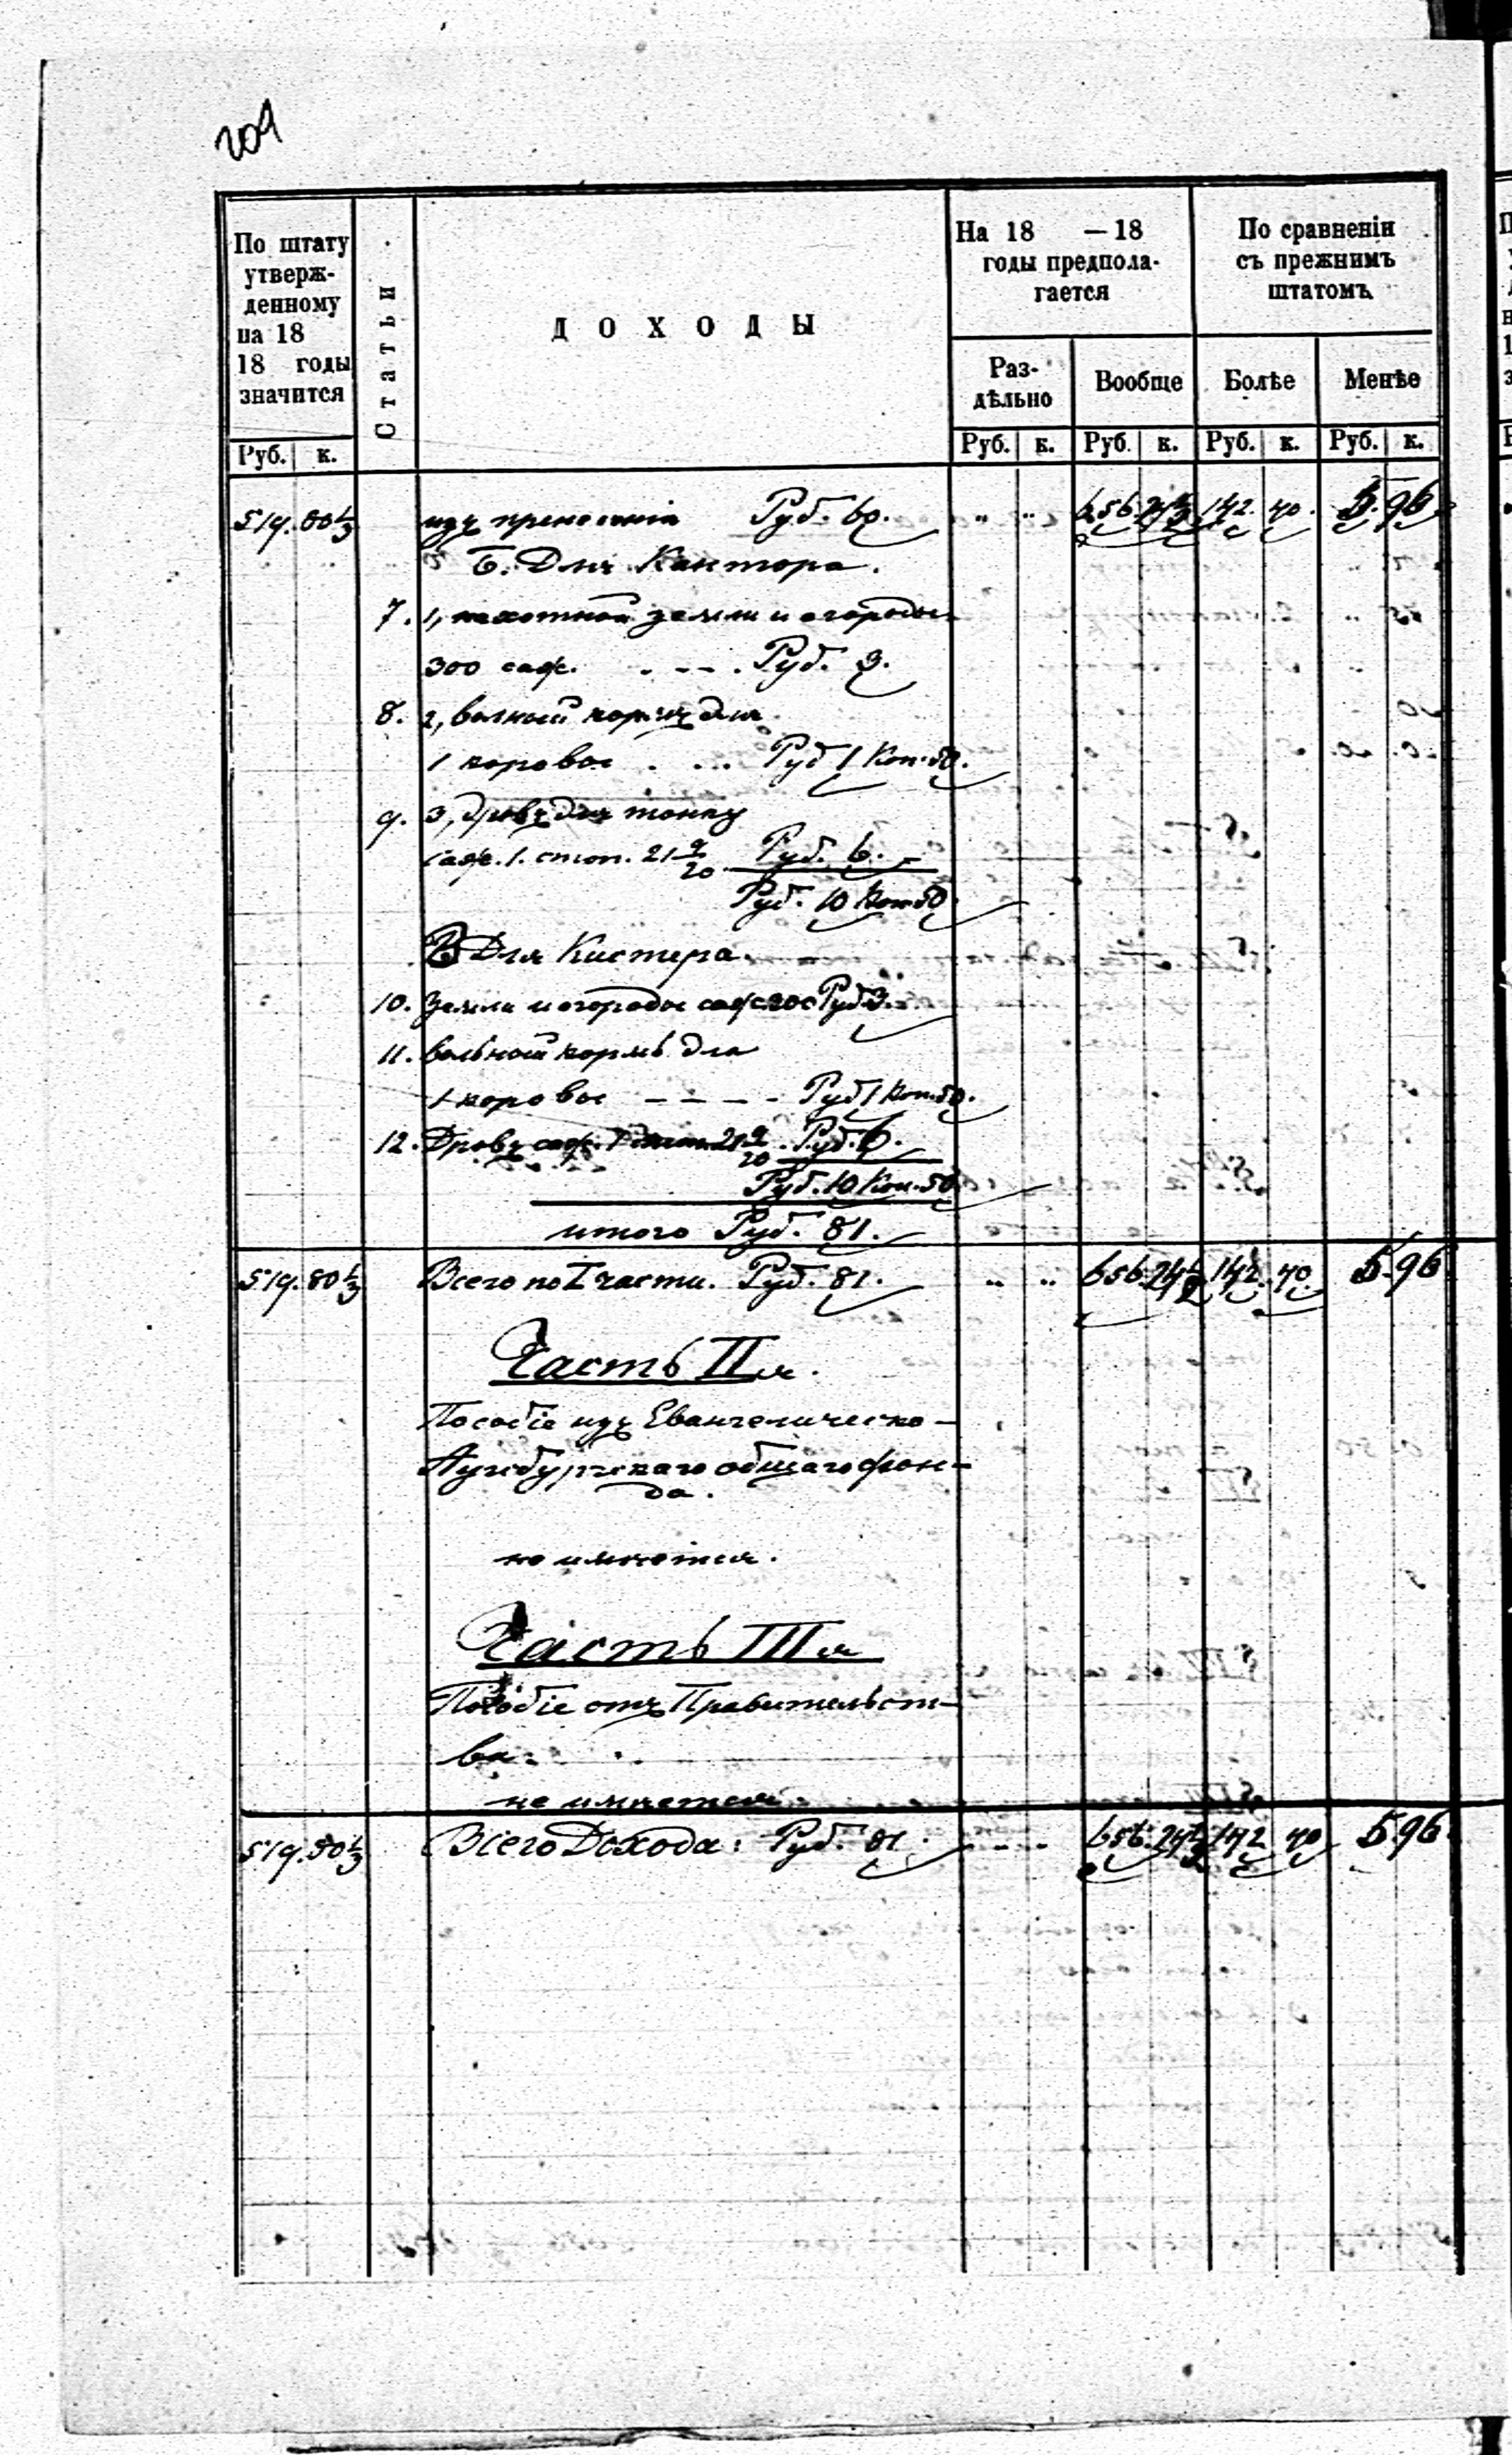 209
По штату
утверж-
денному
на 18
18 годы
значится
Статьи.
ДОХОДЫ
На 18 — 18
годы предпола-
гается
По сравненіи
съ прежнимъ
штатомъ
Раз-
дѣльно
Вообще
Болѣе
Менѣе
Руб. к.
Руб. к. Руб. к. Руб. к. Руб. к.
519. 80⅓ изъ пренесенія Руб. 60. „ „ 656. 24½ 142. 40. 5. 96
Б. Для Кантора.
7. 1, пахотной земли и огороды
300 саж. . - - . Руб. 3.
8. 2, вольный кормъ для
1 коровы . . .. Руб 1 Коп. 50.
9. 3, дровъ для топки
саж. 1. стоп. 21 9/20 Руб. 6. —
Руб. 10 Коп 50
В Для Кистера.
10. Земли и огороды саж 300 Руб 3.
11. вольный кормъ для
1 коровы - - - - Руб 1 Коп. 50.
12. Дровъ саж. 1 стоп. 21 9/20 . Руб. 6.
Руб. 10 Коп. 50
итого Руб. 81.
519. 80⅓ Всего по I части. Руб. 81. „ „ 656. 24½ 142. 40. 5. 96
Часть II я.
Пособіе изъ Евангелическо-
Аугсбургскаго общаго фон-
да.
не имѣется.
Часть III я
Пособіе отъ Правительст-
ва.
не имѣется.
519. 80⅓ Всего Дохода: Руб. 81. - - - 656. 24½ 142 40 5.96